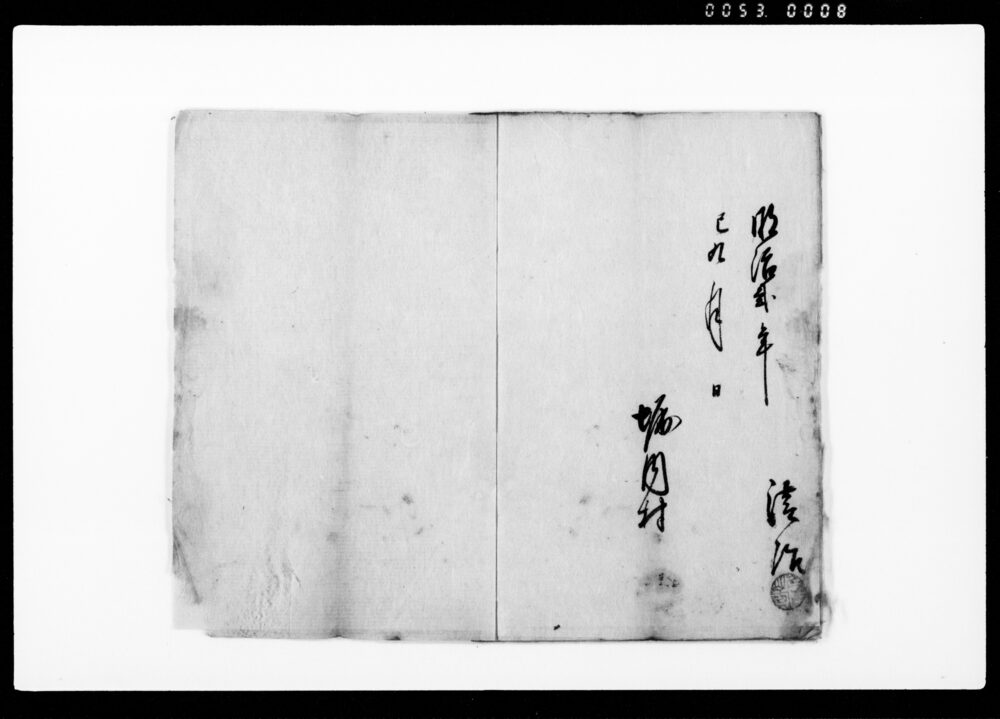 0053. 0008
明治弐年
清治
巳九月日
堀内村